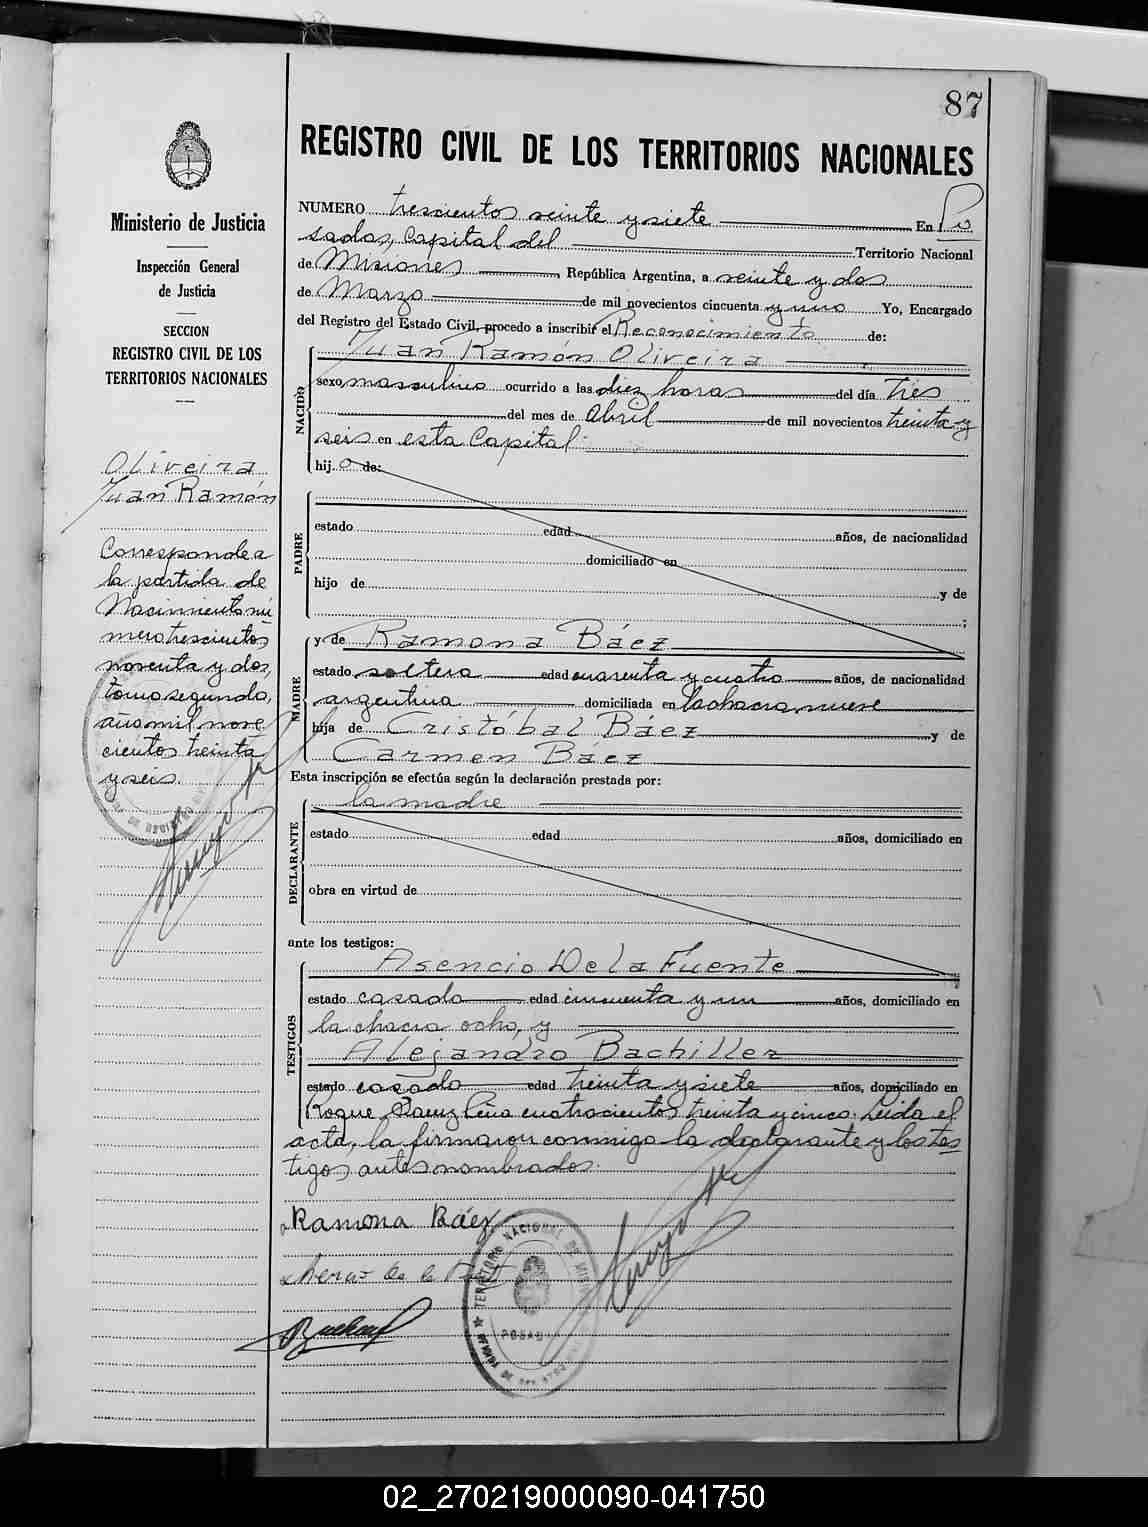 87
REGISTRO CIVIL DE LOS TERRITORIOS NACIONALES
Ministerio de Justicia
Inspección General
de Justicia
SECCION
REGISTRO CIVIL DE LOS
TERRITORIOS NACIONALES
Oliveira
Juan Ramón
Corresponde a
la partida de
Nacimiento nú
mero trescientos
noventa y dos,
tomo segundo,
año mil nove
cientos treinta
y seis.
NUMERO trescientos veinte y siete En Po
sadas, Capital del Territorio Nacional
de Misiones, República Argentina, a veinte y dos
de Marzo de mil novecientos cincuenta y uno Yo, Encargado
del Registro del Estado Civil, procedo a inscribir el Reconocimiento de:
NACIDO
Juan Ramón Oliveira
sexo masculino ocurrido a las diez horas del día tres
del mes de Abril de mil novecientos treinta y
seis en esta Capital
hij o de:
PADRE
estado edad años, de nacionalidad
domiciliado en
hijo de y de
;
MADRE
y de Ramona Báez
estado soltera edad cuarenta y cuatro años, de nacionalidad
argentina domiciliada en la chacra nueve
hija de Cristóbal Báez y de
Carmen Báez
Esta inscripción se efectúa según la declaración prestada por:
DECLARANTE
la madre
estado edad años, domiciliado en
obra en virtud de
ante los testigos:
TESTIGOS
Asencio De la Fuente
estado casado edad cincuenta y un años, domiciliado en
la chacra ocho, y
Alejandro Bachiller
estado casado edad treinta y siete años, domiciliado en
Roque Saenz Peña cuatrocientos treinta y cinco. Leída el
acta, la firmaron conmigo la declarante y los tes
tigos antes nombrados.
Ramona Báez
TERRITORIO NACIONAL DE MISIONES
POSADAS
02_270219000090-041750